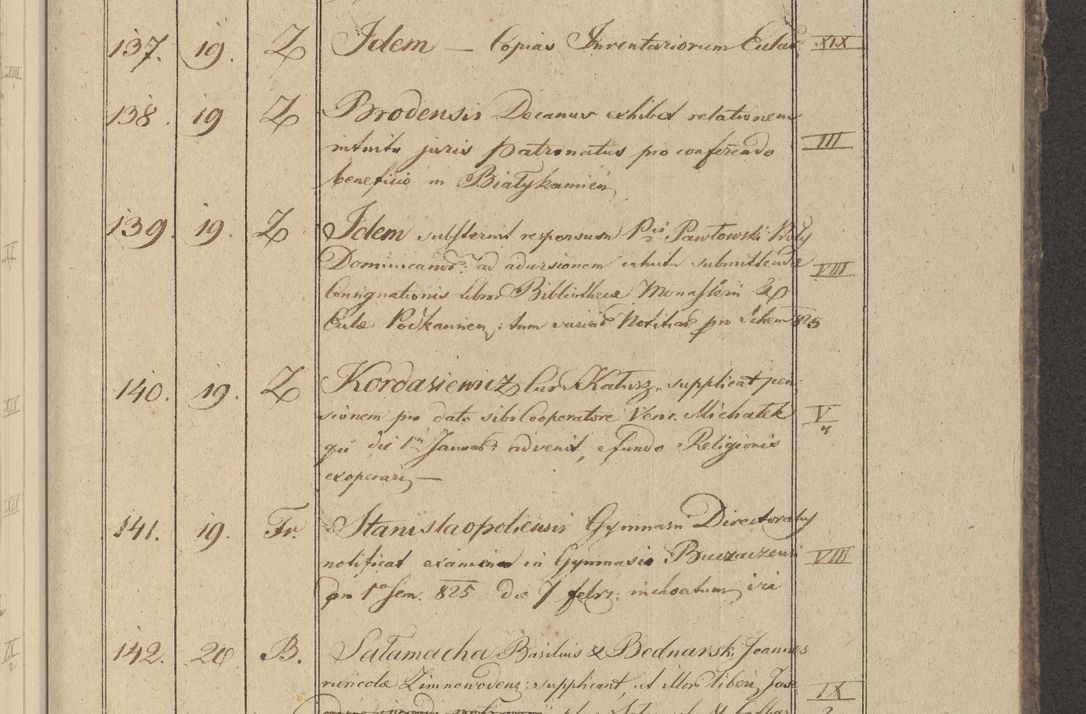 137. 19. Z Idem — Copias Inventariorum Eccles XIX
138. 19 Z Brodensis Decanus exhibet relationem
intuitu juris patronatus pro conferendo III
beneficio in Białykamień
139. 19. Z Idem substernit responsum Pawłowski
Dominicanor: ad adursionem intuitu submittendae VIII
Consignationis libror Bibliothecae Monasterii &
Eccle Podkamien: tum varias Notitias pro Schem 825
140. 19. Z Kordasiewicz Cur. Kałusz. supplicat pen
sionem pro dato sibi Cooperatore Vener. Michałek V
qui die 1ma Januar: advenit, e fundo Religionis
exoperari —
141. 19. Fr. Stanislaopoliensis Gymnasii Directoratus
notificat examina in Gymnasio Buczaczensi VIII
pro 1o Sem. 825 die 7 febr: inchoatum iri
142. 20 B. Sałamacha Basilius & Bednarski Joannes
ruricolae Zimnowodens: supplicant, ut illor liberi IX